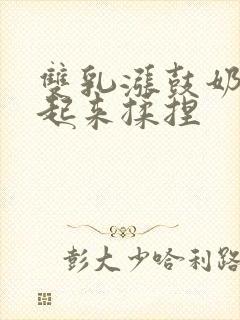 雙乳漲鼓奶
起来揉捏
彭大少哈利路